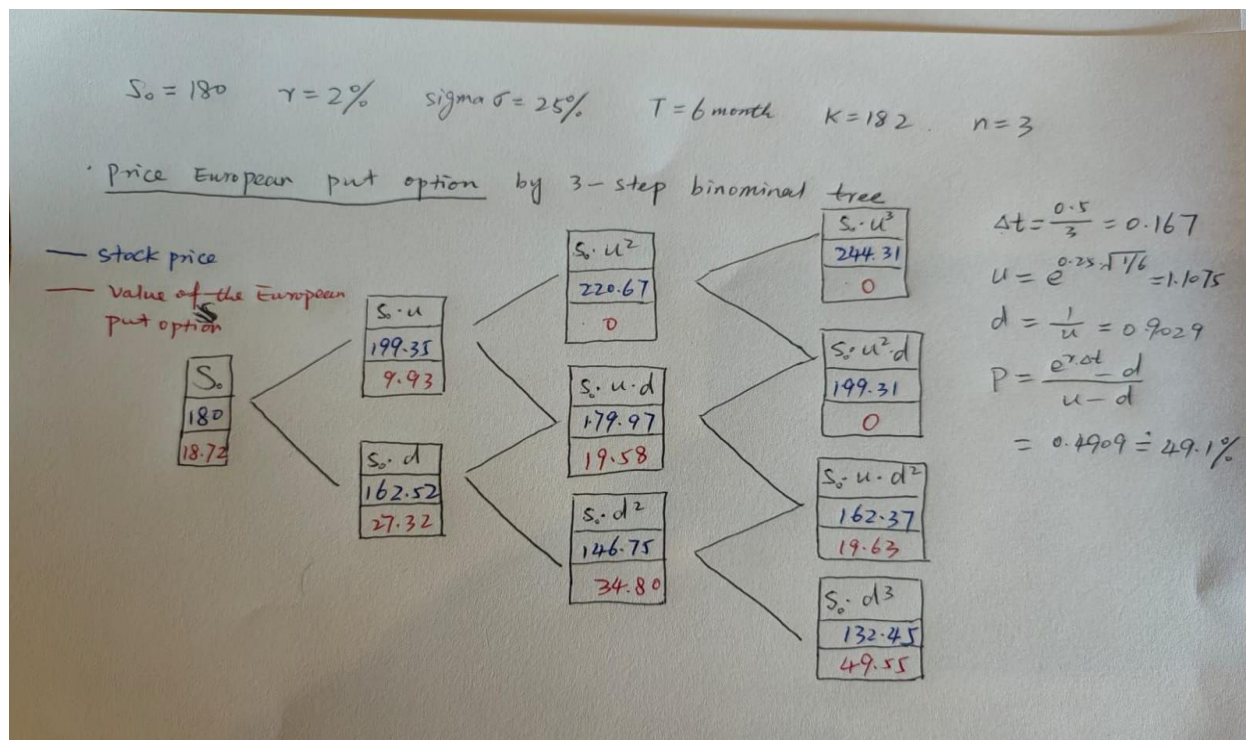 S₀ = 180 r = 2% sigma σ = 25% T = 6 month K = 182. n = 3
· Price European put option by 3-step binominal tree
— stock price
— Value of the European
put option
S₀
180
18.72
S₀·u
199.35
9.93
S₀·d
162.52
27.32
S₀·u²
220.67
0
S₀·u·d
179.97
19.58
S₀·d²
146.75
34.80
S₀·u³
244.31
0
S₀·u²·d
199.31
0
S₀·u·d²
162.37
19.63
S₀·d³
132.45
49.55
Δt = 0.5/3 = 0.167
u = e^(0.25·√(1/6)) = 1.1075
d = 1/u = 0.9029
P = (e^(r·Δt) - d)/(u - d)
= 0.4909 ≐ 49.1%